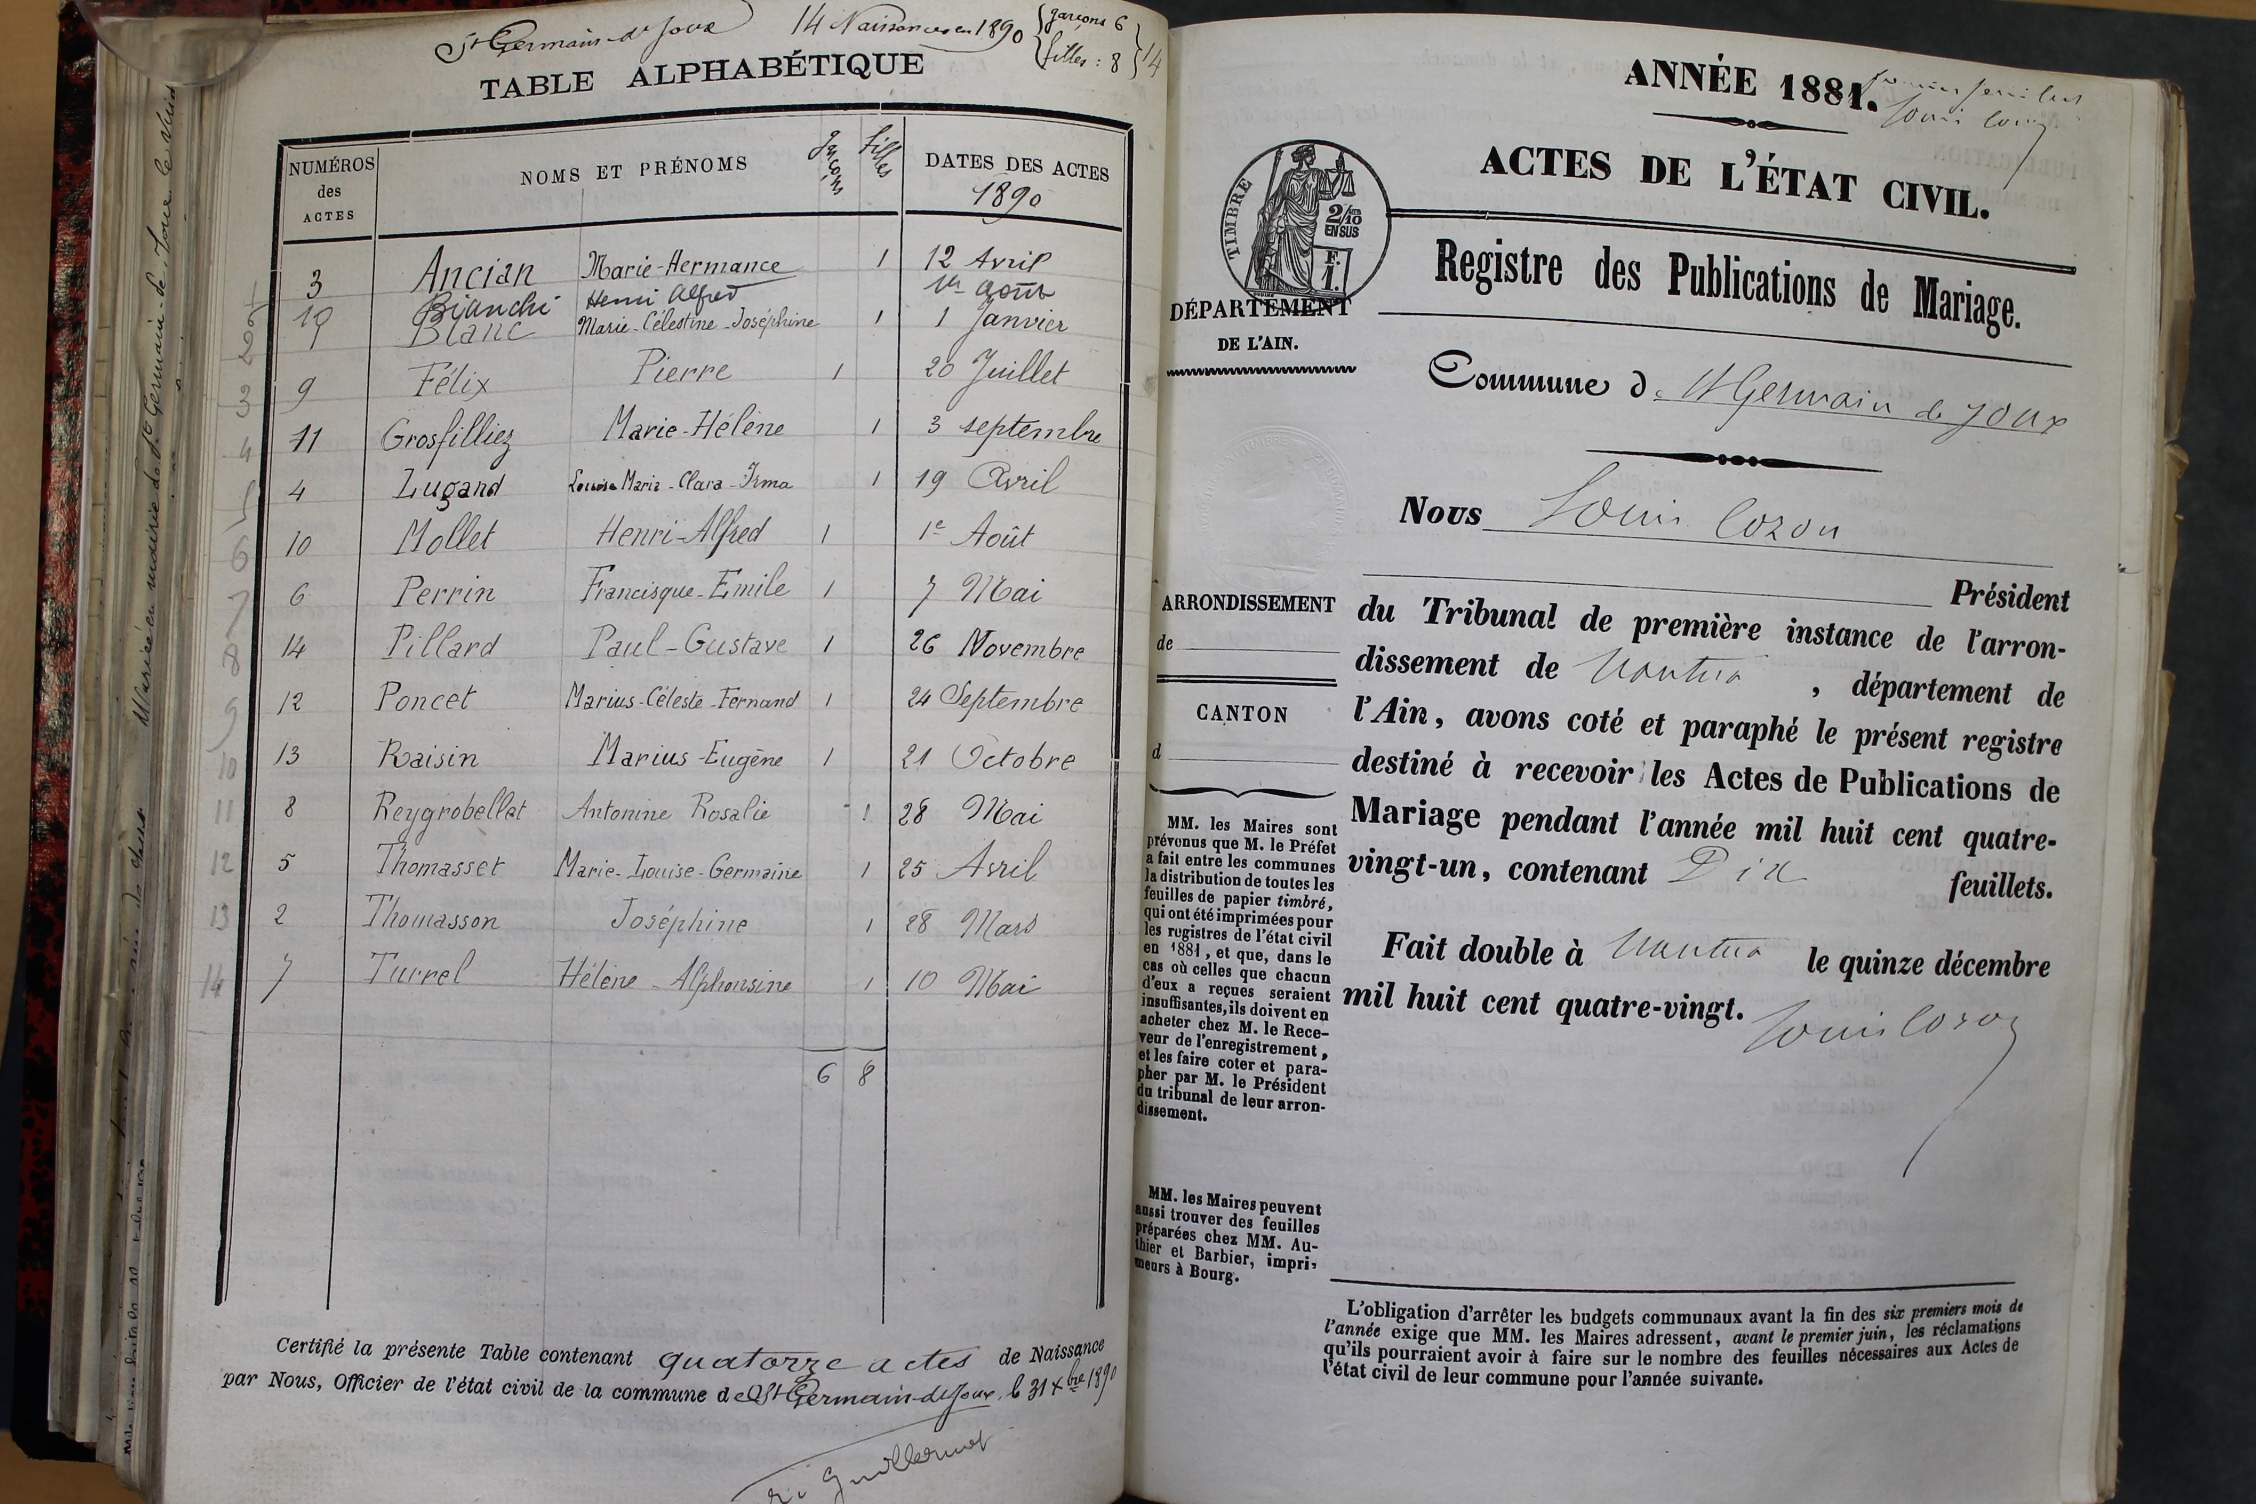 St Germain-de-Joux 14 Naissances en 1890 garçons 6
filles : 8 14
TABLE ALPHABÉTIQUE
NUMÉROS des ACTES NOMS ET PRÉNOMS Garçons filles DATES DES ACTES
1890
3 Ancian Marie-Hermance 1 12 Avril
10 Bianchi Henri Alfred 1er août
1 Blanc Marie-Célestine-Joséphine 1 1 Janvier
9 Félix Pierre 1 20 Juillet
11 Grosfilliez Marie-Hélène 1 3 septembre
4 Lugand Louise Maria-Clara-Irma 1 19 Avril
10 Mollet Henri-Alfred 1 1e Août
6 Perrin Francisque-Emile 1 7 Mai
14 Pillard Paul-Gustave 1 26 Novembre
12 Poncet Marius-Céleste-Fernand 1 24 Septembre
13 Raisin Marius-Eugène 1 21 Octobre
8 Reygrobellet Antonine Rosalie 1 28 Mai
5 Thomasset Marie-Louise-Germaine 1 25 Avril
2 Thomasson Joséphine 1 28 Mars
7 Turrel Hélène-Alphonsine 1 10 Mai
6 8
2
3
4
5
6
7
8
9
10
11
12
13
14
Certifié la présente Table contenant quatorze actes de Naissance
par Nous, Officier de l'état civil de la commune de St Germain-de-Joux, le 31 xbre 1890
Guillermet
ANNÉE 1881.
Louis Cozon
ACTES DE L'ÉTAT CIVIL.
TIMBRE
2/10
EN SUS
F.
1.
DÉPARTEMENT
DE L'AIN.
Registre des Publications de Mariage.
Commune de St Germain de Joux
Nous Louis Cozon
Président
du Tribunal de première instance de l'arron-
dissement de Nantua, département de
l'Ain, avons coté et paraphé le présent registre
destiné à recevoir les Actes de Publications de
Mariage pendant l'année mil huit cent quatre-
vingt-un, contenant Dix feuillets.
Fait double à Nantua le quinze décembre
mil huit cent quatre-vingt.
Louis Cozon
ARRONDISSEMENT
de
CANTON
d
MM. les Maires sont
prévenus que M. le Préfet
a fait entre les communes
la distribution de toutes les
feuilles de papier timbré,
qui ont été imprimées pour
les registres de l'état civil
en 1881, et que, dans le
cas où celles que chacun
d'eux a reçues seraient
insuffisantes, ils doivent en
acheter chez M. le Rece-
veur de l'enregistrement,
et les faire coter et para-
pher par M. le Président
du tribunal de leur arron-
dissement.
MM. les Maires peuvent
aussi trouver des feuilles
préparées chez MM. Au-
thier et Barbier, impri-
meurs à Bourg.
L'obligation d'arrêter les budgets communaux avant la fin des six premiers mois de
l'année exige que MM. les Maires adressent, avant le premier juin, les réclamations
qu'ils pourraient avoir à faire sur le nombre des feuilles nécessaires aux Actes de
l'état civil de leur commune pour l'année suivante.